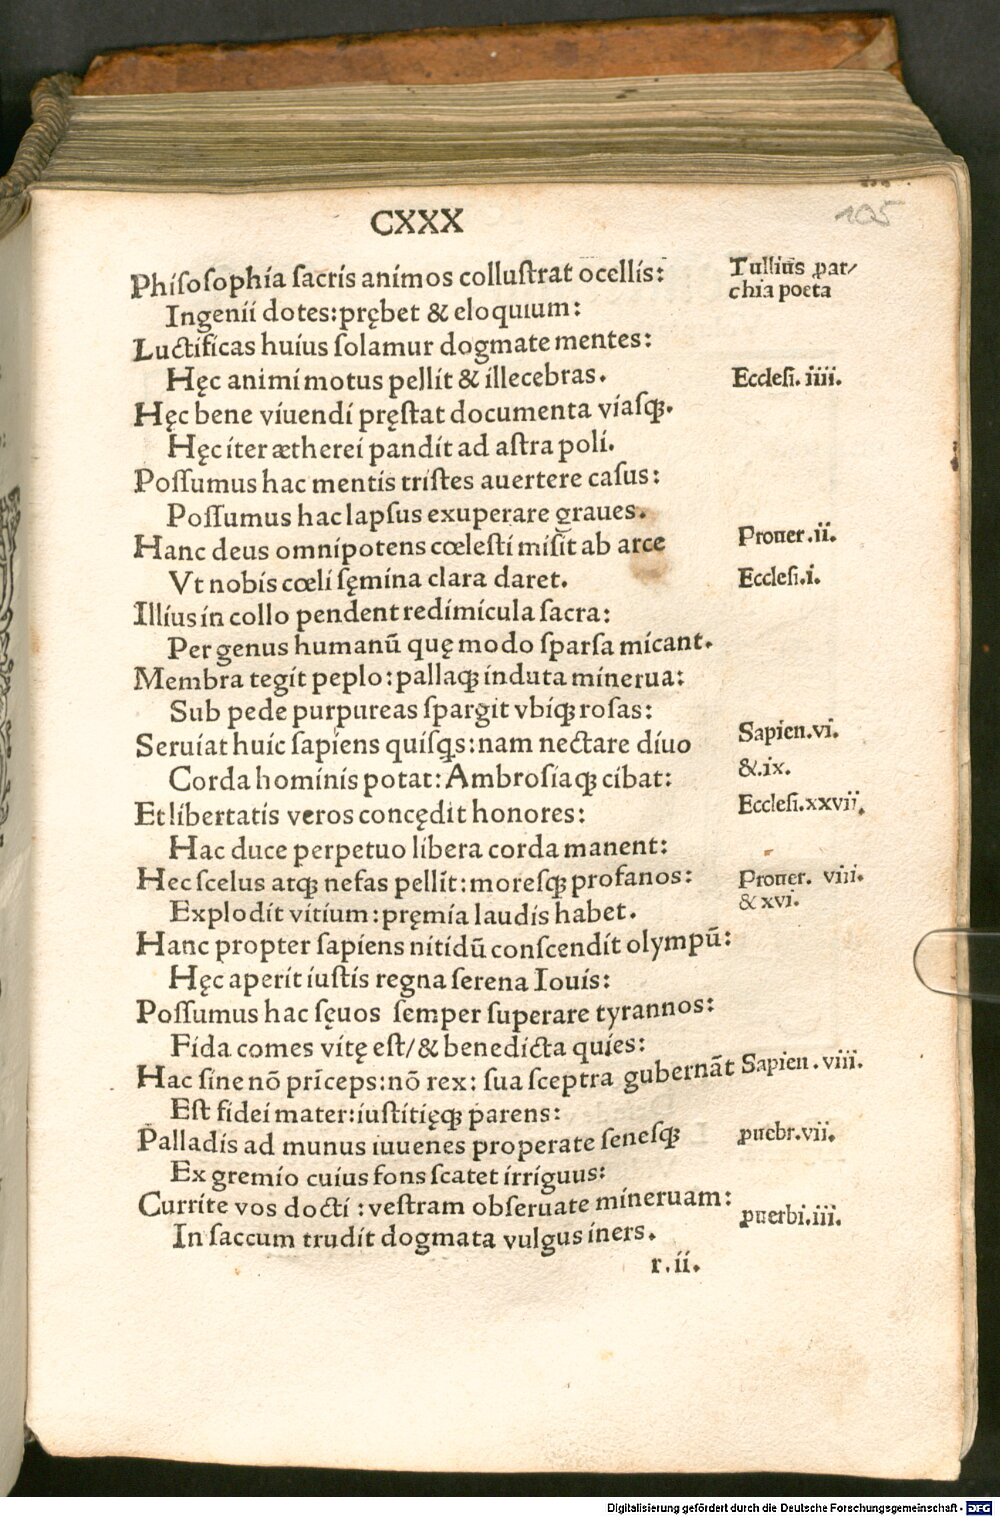 CXXX
105
Phiſoſophia ſacris animos colluſtrat ocellis:
Tullius ꝑar/
chia poeta
Ingenii dotes:prębet & eloquium:
Luctificas huius ſolamur dogmate mentes:
Hęc animi motus pellit & illecebras.
Eccleſi. iiii.
Hęc bene viuendi pręſtat documenta viaſꝗ.
Hęc iter ætherei pandit ad aſtra poli.
Poſſumus hac mentis triſtes auertere caſus:
Poſſumus hac lapſus exuperare graues.
Hanc deus omnipotens cœleſti miſit ab arce
Prouer.ii.
Vt nobis cœli ſęmina clara daret.
Eccleſi.i.
Illius in collo pendent redimicula ſacra:
Per genus humanū quę modo ſparſa micant.
Membra tegit peplo:pallaꝗ induta minerua:
Sub pede purpureas ſpargit vbiꝗ roſas:
Seruiat huic ſapiens quiſꝗs:nam nectare diuo
Sapien.vi.
Corda hominis potat: Ambroſiaꝗ cibat:
&.ix.
Et libertatis veros concędit honores:
Eccleſi.xxvii.
Hac duce perpetuo libera corda manent:
Hec ſcelus atꝗ nefas pellit:moreſꝗ profanos:
Prouer. viii.
& xvi.
Explodit vitium:pręmia laudis habet.
Hanc propter ſapiens nitidū conſcendit olympū:
Hęc aperit iuſtis regna ſerena Iouis:
Poſſumus hac ſęuos ſemper ſuperare tyrannos:
Fida comes vitę eſt/& benedicta quies:
Hac ſine nō prīceps:nō rex: ſua ſceptra gubernāt
Sapien.viii.
Eſt fidei mater:iuſtitięꝗ parens:
Palladis ad munus iuuenes properate ſeneſꝗ
ꝓuebr.vii.
Ex gremio cuius fons ſcatet irriguus:
Currite vos docti :veſtram obſeruate mineruam:
ꝓuerbi.iii.
In ſaccum trudit dogmata vulgus iners.
r.ii.
Digitalisierung gefördert durch die Deutsche Forschungsgemeinschaft - DFG